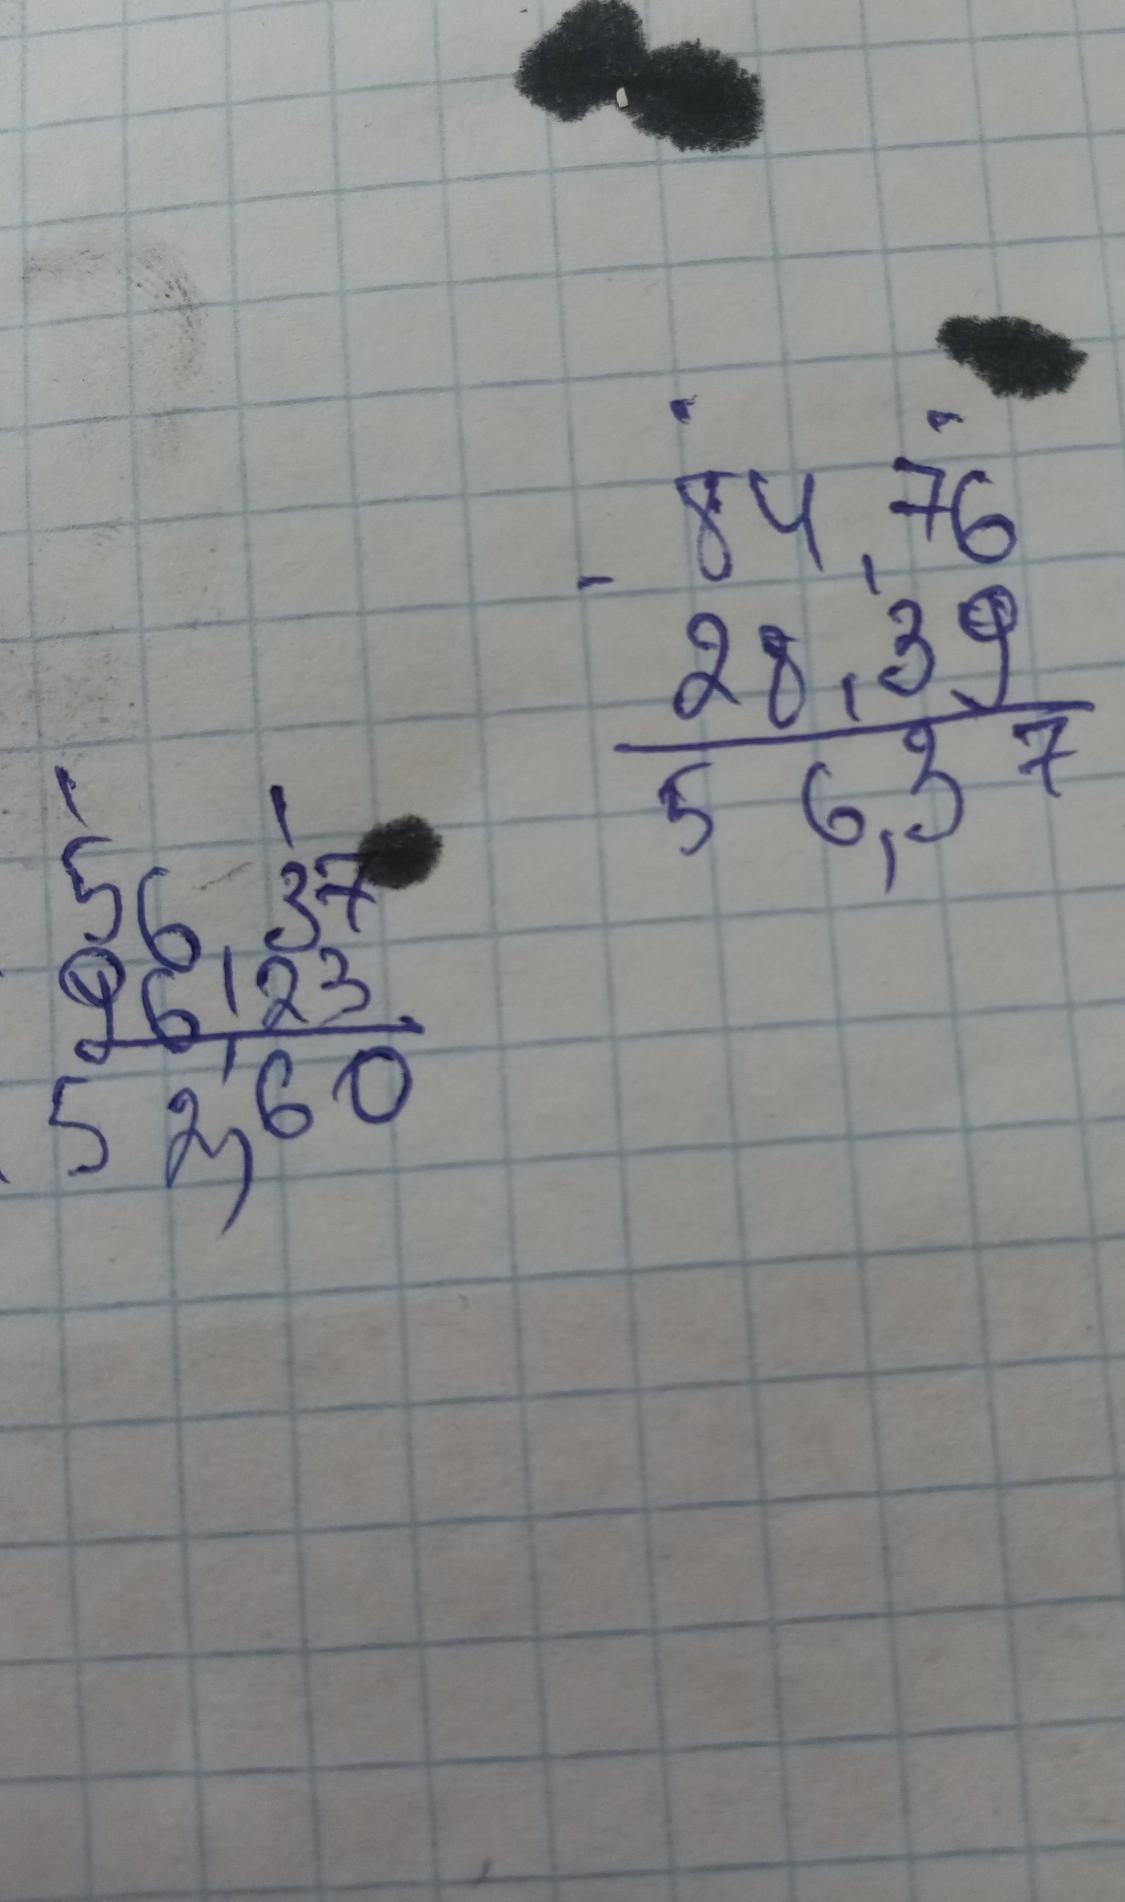 84,76
-
28,39
56,37
56,37
96,23
52,60